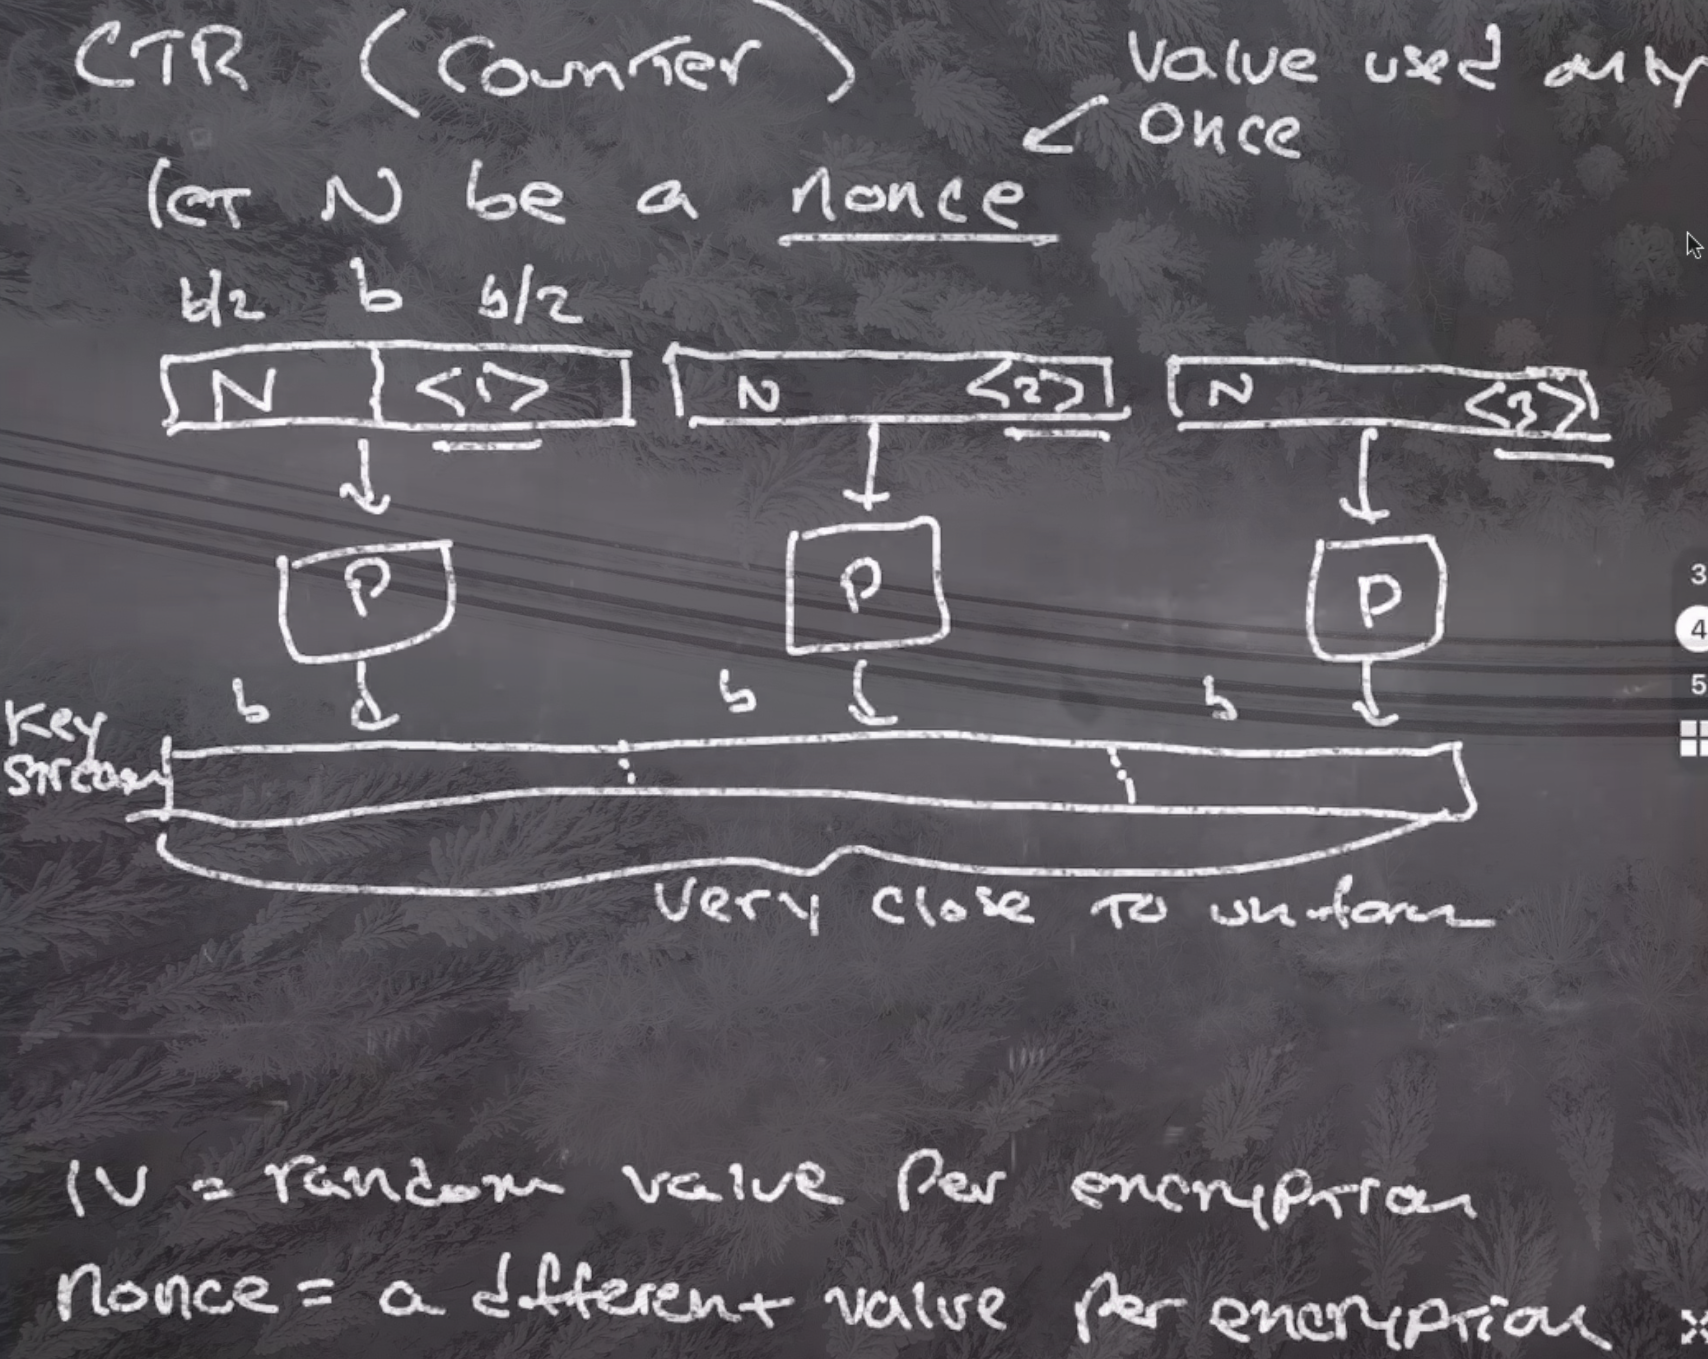 CTR (Counter)
Value used only
once
let N be a nonce
b/2 b b/2
N <1> N <2> N <3>
P P P
b b b
Key
Stream
Very close to uniform
IV = random value per encryption
nonce = a different value per encryption
3
4
5